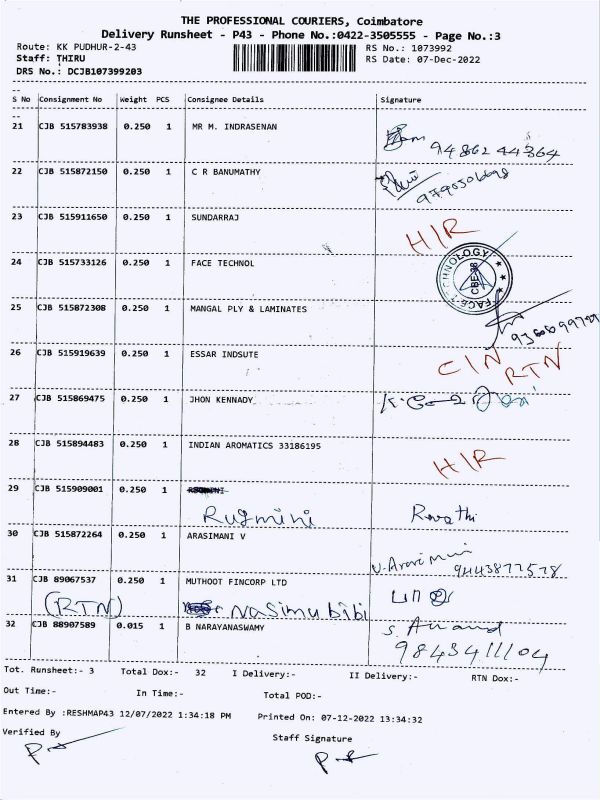 THE PROFESSIONAL COURIERS, Coimbatore
Delivery Runsheet - P43 - Phone No.:0422-3505555 - Page No.:3
Route: KK PUDHUR-2-43 RS No.: 1073992
Staff: THIRU RS Date: 07-Dec-2022
DRS No.: DCJB107399203
S No Consignment No Weight PCS Consignee Details Signature
21 CJB 515783938 0.250 1 MR M. INDRASENAN
94862 44364
22 CJB 515872150 0.250 1 C R BANUMATHY
23 CJB 515911650 0.250 1 SUNDARRAJ
H/R
24 CJB 515733126 0.250 1 FACE TECHNOL
FACE TECHNOLOGY CBE-38
25 CJB 515872308 0.250 1 MANGAL PLY & LAMINATES
26 CJB 515919639 0.250 1 ESSAR INDSUTE
C/N RTN
27 CJB 515869475 0.250 1 JHON KENNADY
28 CJB 515894483 0.250 1 INDIAN AROMATICS 33186195
H/R
29 CJB 515909001 0.250 1
Rugmini Revathi
30 CJB 515872264 0.250 1 ARASIMANI V
V. Arasimani 9443877578
31 CJB 89067537 0.250 1 MUTHOOT FINCORP LTD
(RTN) Nasimubibi
32 CJB 88907589 0.015 1 B NARAYANASWAMY S. Anand
9843411104
Tot. Runsheet:- 3 Total Dox:- 32 I Delivery:- II Delivery:- RTN Dox:-
Out Time:- In Time:- Total POD:-
Entered By :RESHMAP43 12/07/2022 1:34:18 PM Printed On: 07-12-2022 13:34:32
Verified By Staff Signature